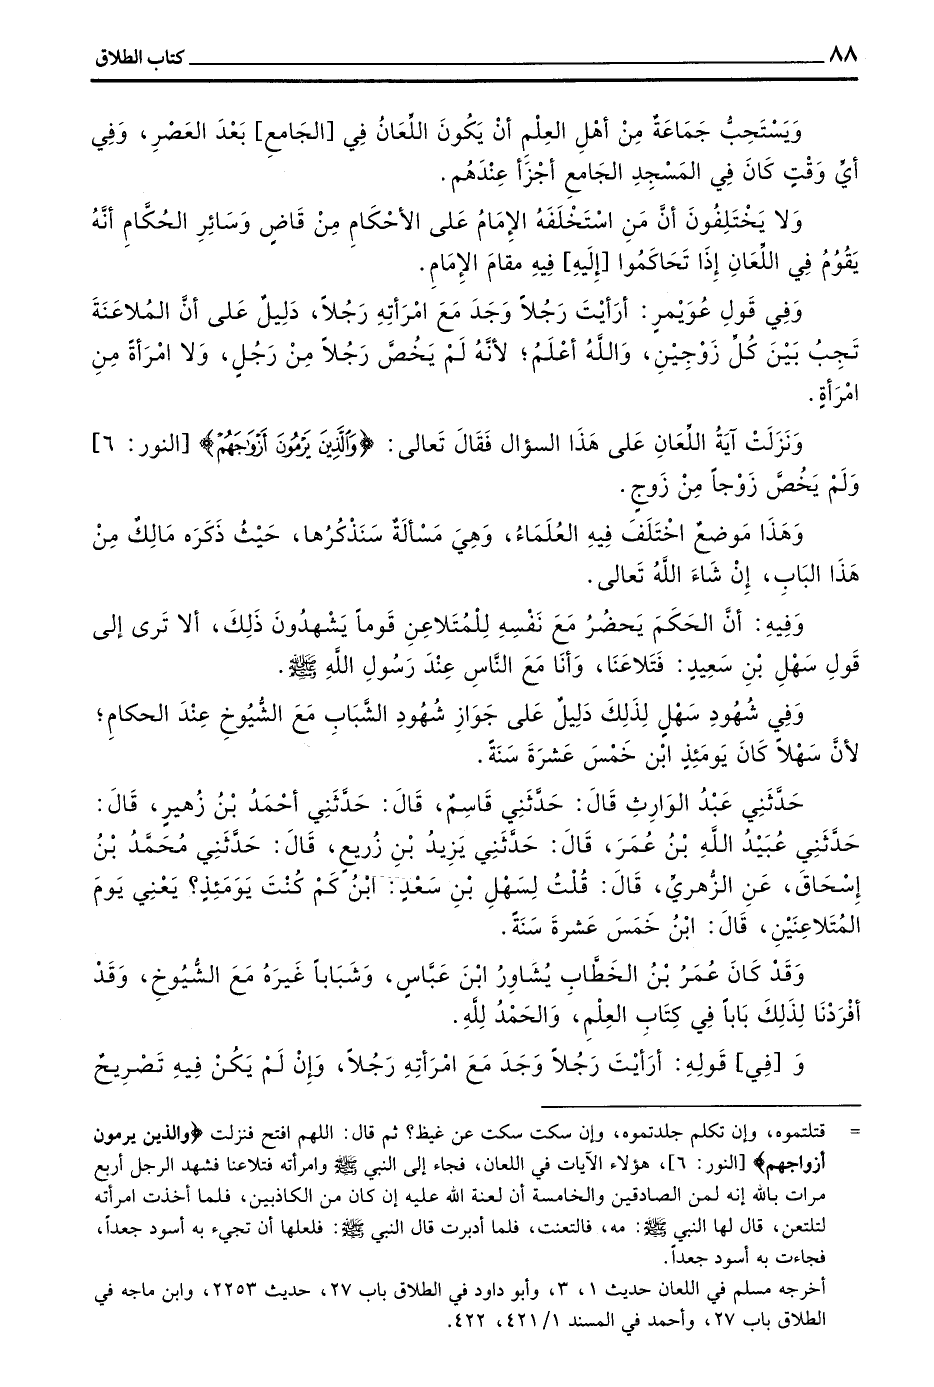 ٨٨ كتاب الطلاق
وَيَسْتَحِبُّ جَمَاعَةٌ مِنْ أهْلِ العِلْمِ أنْ يَكُونَ اللِّعَانُ فِي [الجَامعِ] بَعْدَ العَصْرِ، وَفِي
أيِّ وَقْتٍ كَانَ فِي المَسْجِدِ الجَامعِ أجْزَأ عِنْدَهُم.
وَلا يَخْتَلِفُونَ أنَّ مَنِ اسْتَخْلَفَهُ الإمَامُ عَلى الأحْكَامِ مِنْ قَاضٍ وَسَائِرِ الحُكَّامِ أنَّهُ
يَقُوُمُ فِي اللِّعَانِ إذَا تَحَاكَمُوا [إلَيهِ] فِيهِ مقامَ الإمَامِ.
وَفِي قَولِ عُوَيْمرٍ: أرَأيْتَ رَجُلاً وَجَدَ مَعَ امْرَأتِهِ رَجُلاً، دَلِيلٌ عَلى أنَّ المُلاعَنَةَ
تَجِبُ بَيْنَ كُلِّ زَوْجِيْنِ، وَاللَّهُ أعْلَمُ؛ لأنَّهُ لَمْ يَخُصَّ رَجُلاً مِنْ رَجُلٍ، وَلا امْرَأةً مِنِ
امْرَأةٍ.
وَنَزَلَتْ آيَةُ اللِّعَانِ عَلى هَذَا السؤالِ فَقَالَ تَعالى: ﴿وَٱلَّذِينَ يَرْمُونَ أَزْوَٰجَهُمْ﴾ [النور: ٦]
وَلَمْ يَخُصَّ زَوْجاً مِنْ زَوجٍ.
وَهَذَا مَوضعٌ اخْتَلَفَ فِيهِ العُلَمَاءُ، وَهِيَ مَسْألَةٌ سَنَذْكُرُها، حَيْثُ ذَكَرَه مَالِكٌ مِنْ
هَذَا البَابِ، إنْ شَاءَ اللَّهُ تَعالى.
وَفِيهِ: أنَّ الحَكَمَ يَحضُرُ مَعَ نَفْسِهِ لِلْمُتَلاعِنِ قَوماً يَشْهدُونَ ذَلِكَ، ألا تَرى إلى
قَولِ سَهْلِ بْنِ سَعِيدٍ: فَتَلاعَنَا، وَأنَا مَعَ النَّاسِ عِنْدَ رَسُولِ اللَّهِ ﷺ.
وَفِي شُهُودِ سَهْلٍ لِذَلِكَ دَلِيلٌ عَلى جَوَازِ شُهُودِ الشَّبَابِ مَعَ الشُّيُوخِ عِنْدَ الحكامِ؛
لأنَّ سَهْلاً كَانَ يَومَئِذٍ ابْن خَمْسَ عَشرَةَ سَنَةً.
حَدَّثَنِي عَبْدُ الوَارِثِ قَالَ: حَدَّثَنِي قَاسِمٌ، قَالَ: حَدَّثَنِي أحْمَدُ بْنُ زُهيرٍ، قَالَ:
حَدَّثَنِي عُبَيْدُ اللَّهِ بْنُ عُمَرَ، قَالَ: حَدَّثَنِي يَزِيدُ بْنِ زُريعٍ، قَالَ: حَدَّثَنِي مُحَمَّدُ بْنُ
إسْحَاقَ، عَنِ الزُّهريِّ، قَالَ: قُلْتُ لِسَهْلِ بْنِ سَعْدٍ: ابْنُ كَمْ كُنْتَ يَوَمَئِذٍ؟ يَعْنِي يَومَ
المُتَلاعِنَيْنِ، قَالَ: ابْنُ خَمَسَ عَشرةَ سَنَةً.
وَقَدْ كَانَ عُمَرُ بْنُ الخَطَّابِ يُشَاوِرُ ابْنَ عَبَّاسٍ، وَشَبَاباً غَيرَهُ مَعَ الشُّيُوخِ، وَقَدْ
أفْرَدْنَا لِذَلِكَ بَاباً فِي كِتَابِ العِلْمِ، وَالحَمْدُ لِلَّهِ.
وَ [فِي] قَولِهِ: أرَأيْتَ رَجُلاً وَجَدَ مَعَ امْرَأتِهِ رَجُلاً، وَإنْ لَمْ يَكُنْ فِيهِ تَصْرِيحٌ
= قتلتموه، وإن تكلم جلدتموه، وإن سكت سكت عن غيظ؟ ثم قال: اللهم افتح فنزلت ﴿والذين يرمون
أزواجهم﴾ [النور: ٦]، هؤلاء الآيات في اللعان، فجاء إلى النبي ﷺ وامرأته فتلاعنا فشهد الرجل أربع
مرات بالله إنه لمن الصادقين والخامسة أن لعنة الله عليه إن كان من الكاذبين، فلما أخذت امرأته
لتلتعن، قال لها النبي ﷺ: مه، فالتعنت، فلما أدبرت قال النبي ﷺ: فلعلها أن تجيء به أسود جعداً،
فجاءت به أسود جعداً.
أخرجه مسلم في اللعان حديث ١، ٣، وأبو داود في الطلاق باب ٢٧، حديث ٢٢٥٣، وابن ماجه في
الطلاق باب ٢٧، وأحمد في المسند ١/ ٤٢١، ٤٢٢.